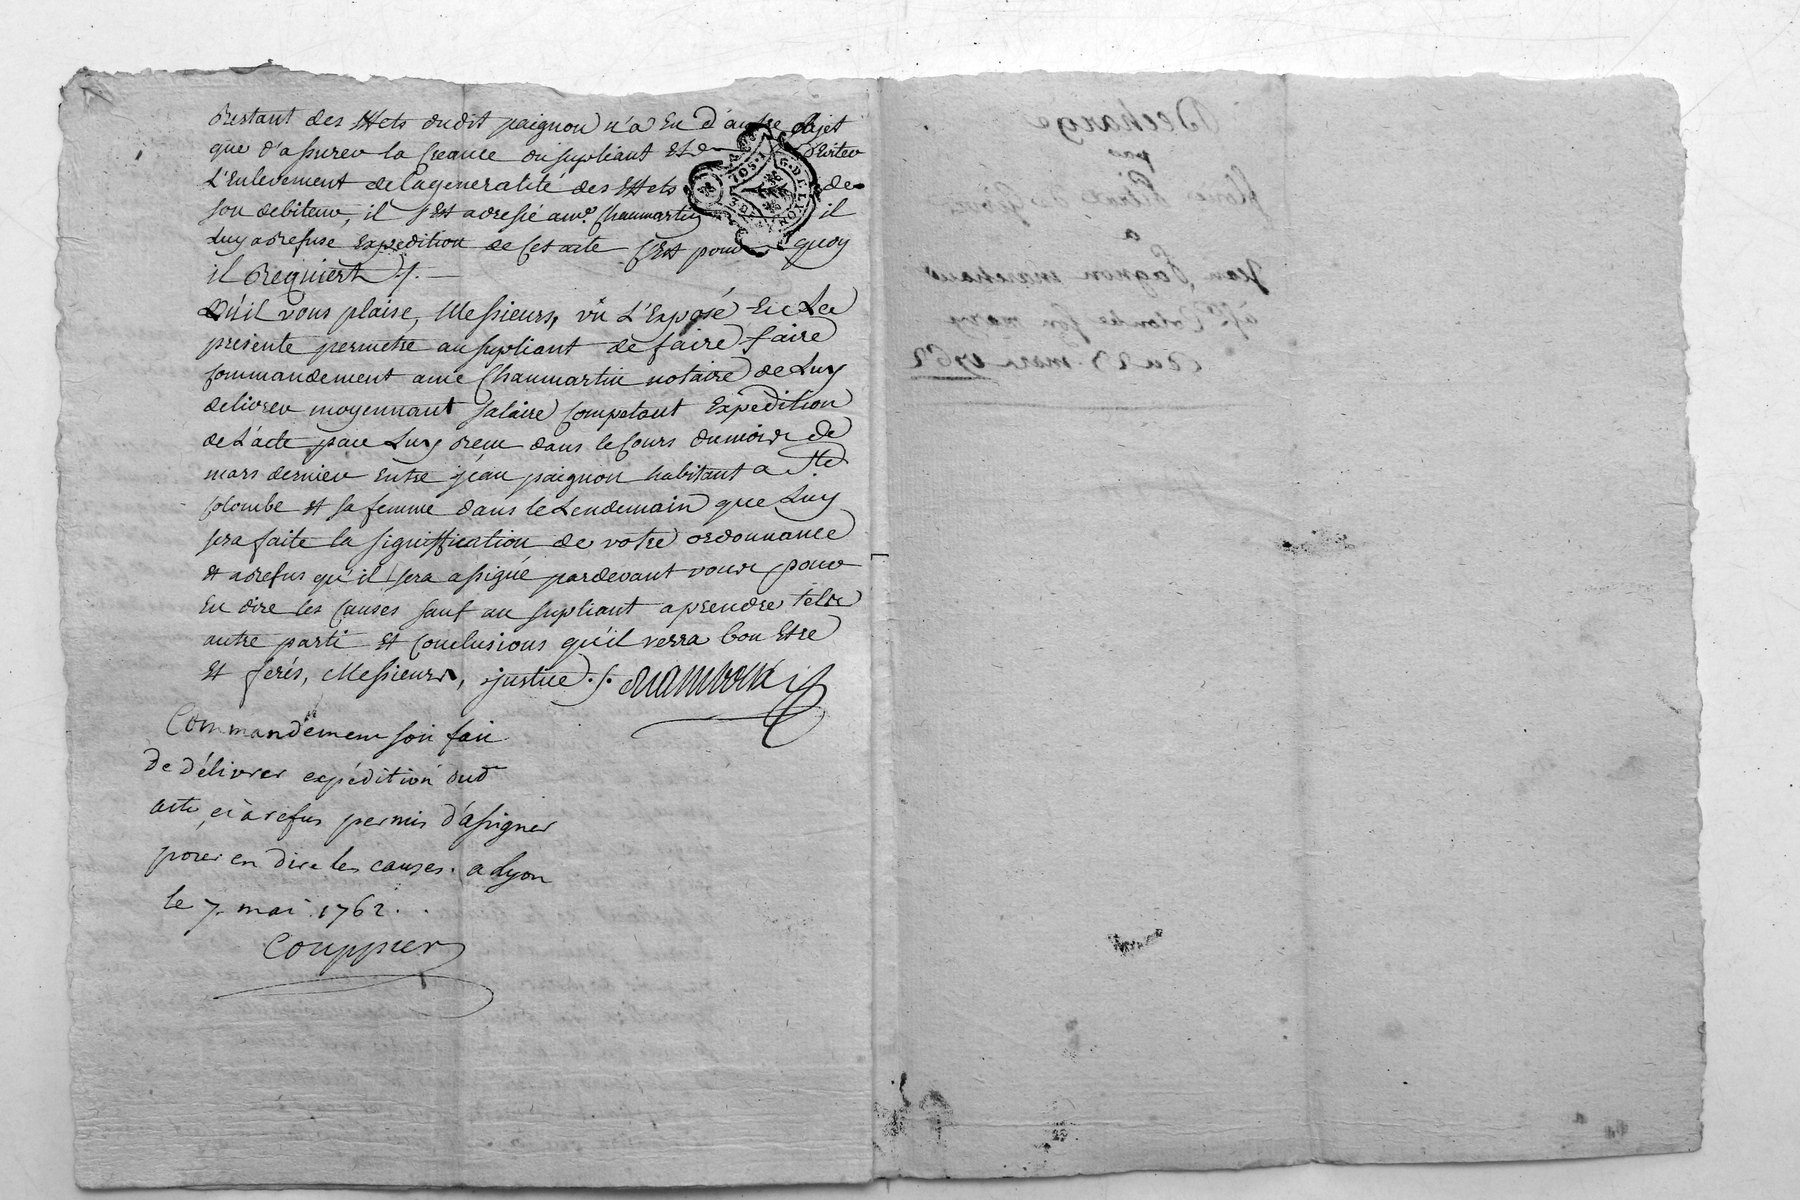 restant des effets dudit paignon n'a Eu d'autre objet
que d'assurer la Creance du supliant Et d'Eviter
L'Enlevement de la generalité des effets de
son debiteur, il s'est adressé a me. Chaumartin il
Luy a refusé Expedition de Cet acte C'Est pour quoy
il Requiert ./.
Qu'il vous plaise, Messieurs, vû L'Exposé En La
presente permettre au supliant de faire faire
Commandement a me Chaumartin notaire de Luy
delivrer moyennant salaire Competant Expedition
de L'acte par Luy reçu dans le Cours du mois de
mars dernier Entre jean paignon habitant a Ste
Colombe et sa femme dans le Lendemain que Luy
sera faite la signiffication de votre ordonnance
et a refus qu'il sera assigné pardevant vous pour
En dire les Causes sauf au supliant a prendre telle
autre parti et Conclusions qu'il verra bon Etre
Et ferés, Messieurs, justice ./.
Commandement soit fait
De Délivrer expédition dud
acte, et à refus permis d'assigner
pour en Dire les causes. a Lyon
le 7. mai 1762.
Couppier
G. DE LYON
Decharge
par
a
Jean Pagnon marchand
à Ste Colombe son mary
du 28 mars 1762